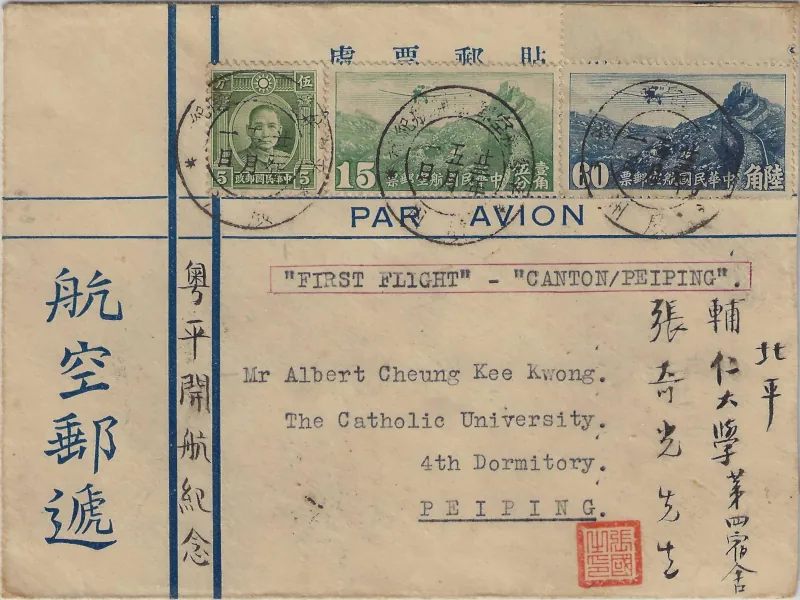 貼郵票處
伍分
中華民國郵政
5 5
壹角伍分
中華民國航空郵票
15
陸角
中華民國航空郵票
60
PAR AVION
航空郵遞
粵平開航紀念
"FIRST FLIGHT" - "CANTON/PEIPING".
Mr Albert Cheung Kee Kwong.
The Catholic University.
4th Dormitory.
PEIPING.
北平
輔仁大學第四宿舍
張奇光先生
張國之印